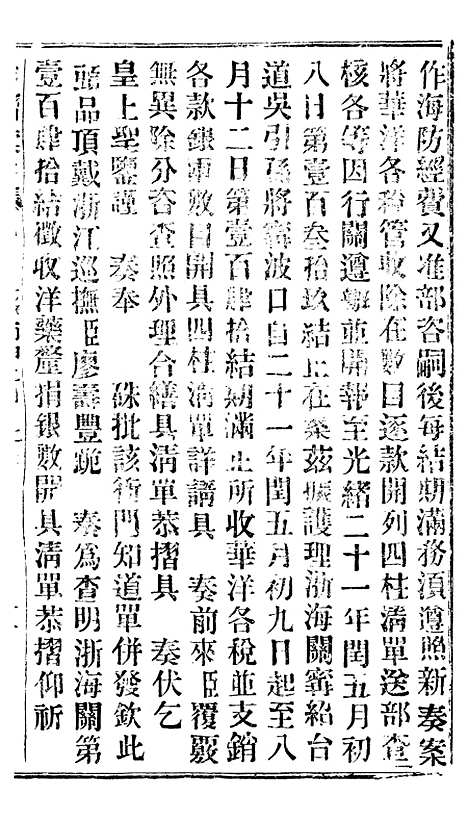 作海防經費又准部咨嗣後每結期滿務須遵照新奏案
將華洋各稅管收除在數目逐款開列四柱清單送部查
核各等因行關遵辦並開報至光緒二十一年閏五月初
八日第壹百叁拾玖結止在案茲據護理浙海關寧紹台
道吳引孫將寧波口自二十一年閏五月初九日起至八
月十二日第壹百肆拾結期滿止所收華洋各稅並支銷
各款銀兩數目開具四柱清單詳請具　奏前來臣覆覈
無異除分咨查照外理合繕具清單恭摺具　奏伏乞
皇上聖鑒謹　奏奉　硃批該衙門知道單併發欽此
頭品頂戴浙江巡撫臣廖壽豐跪　奏爲查明浙海關第
壹百肆拾結徵收洋藥釐捐銀數開具清單恭摺仰祈